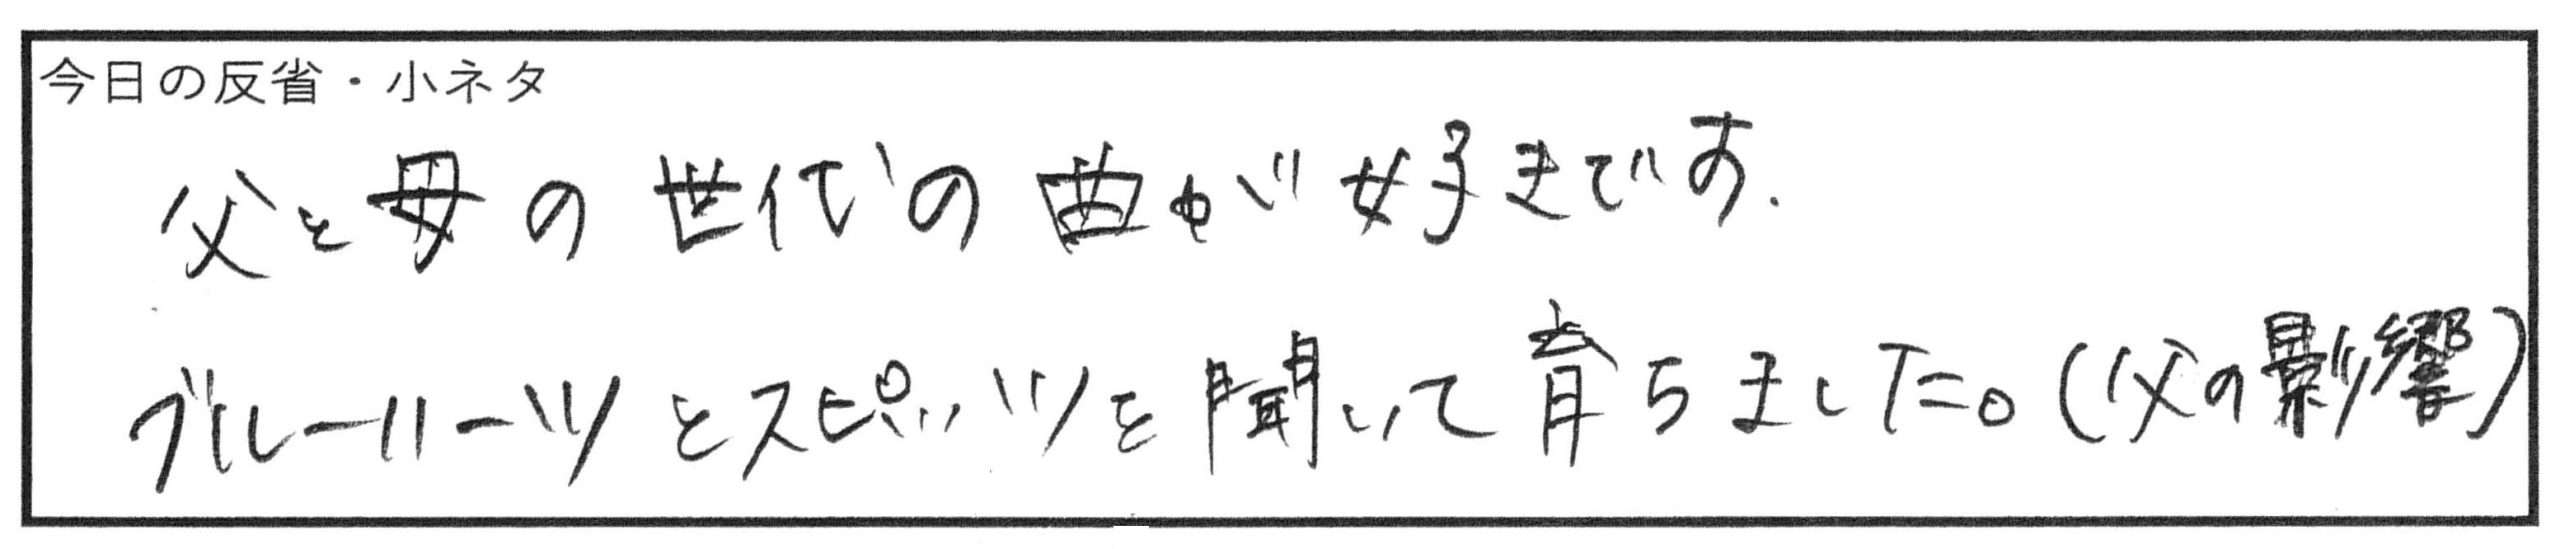 今日の反省・小ネタ
父と母の世代の曲が好きです.
ブルーハーツとスピッツを聞いて育ちました。(父の影響)